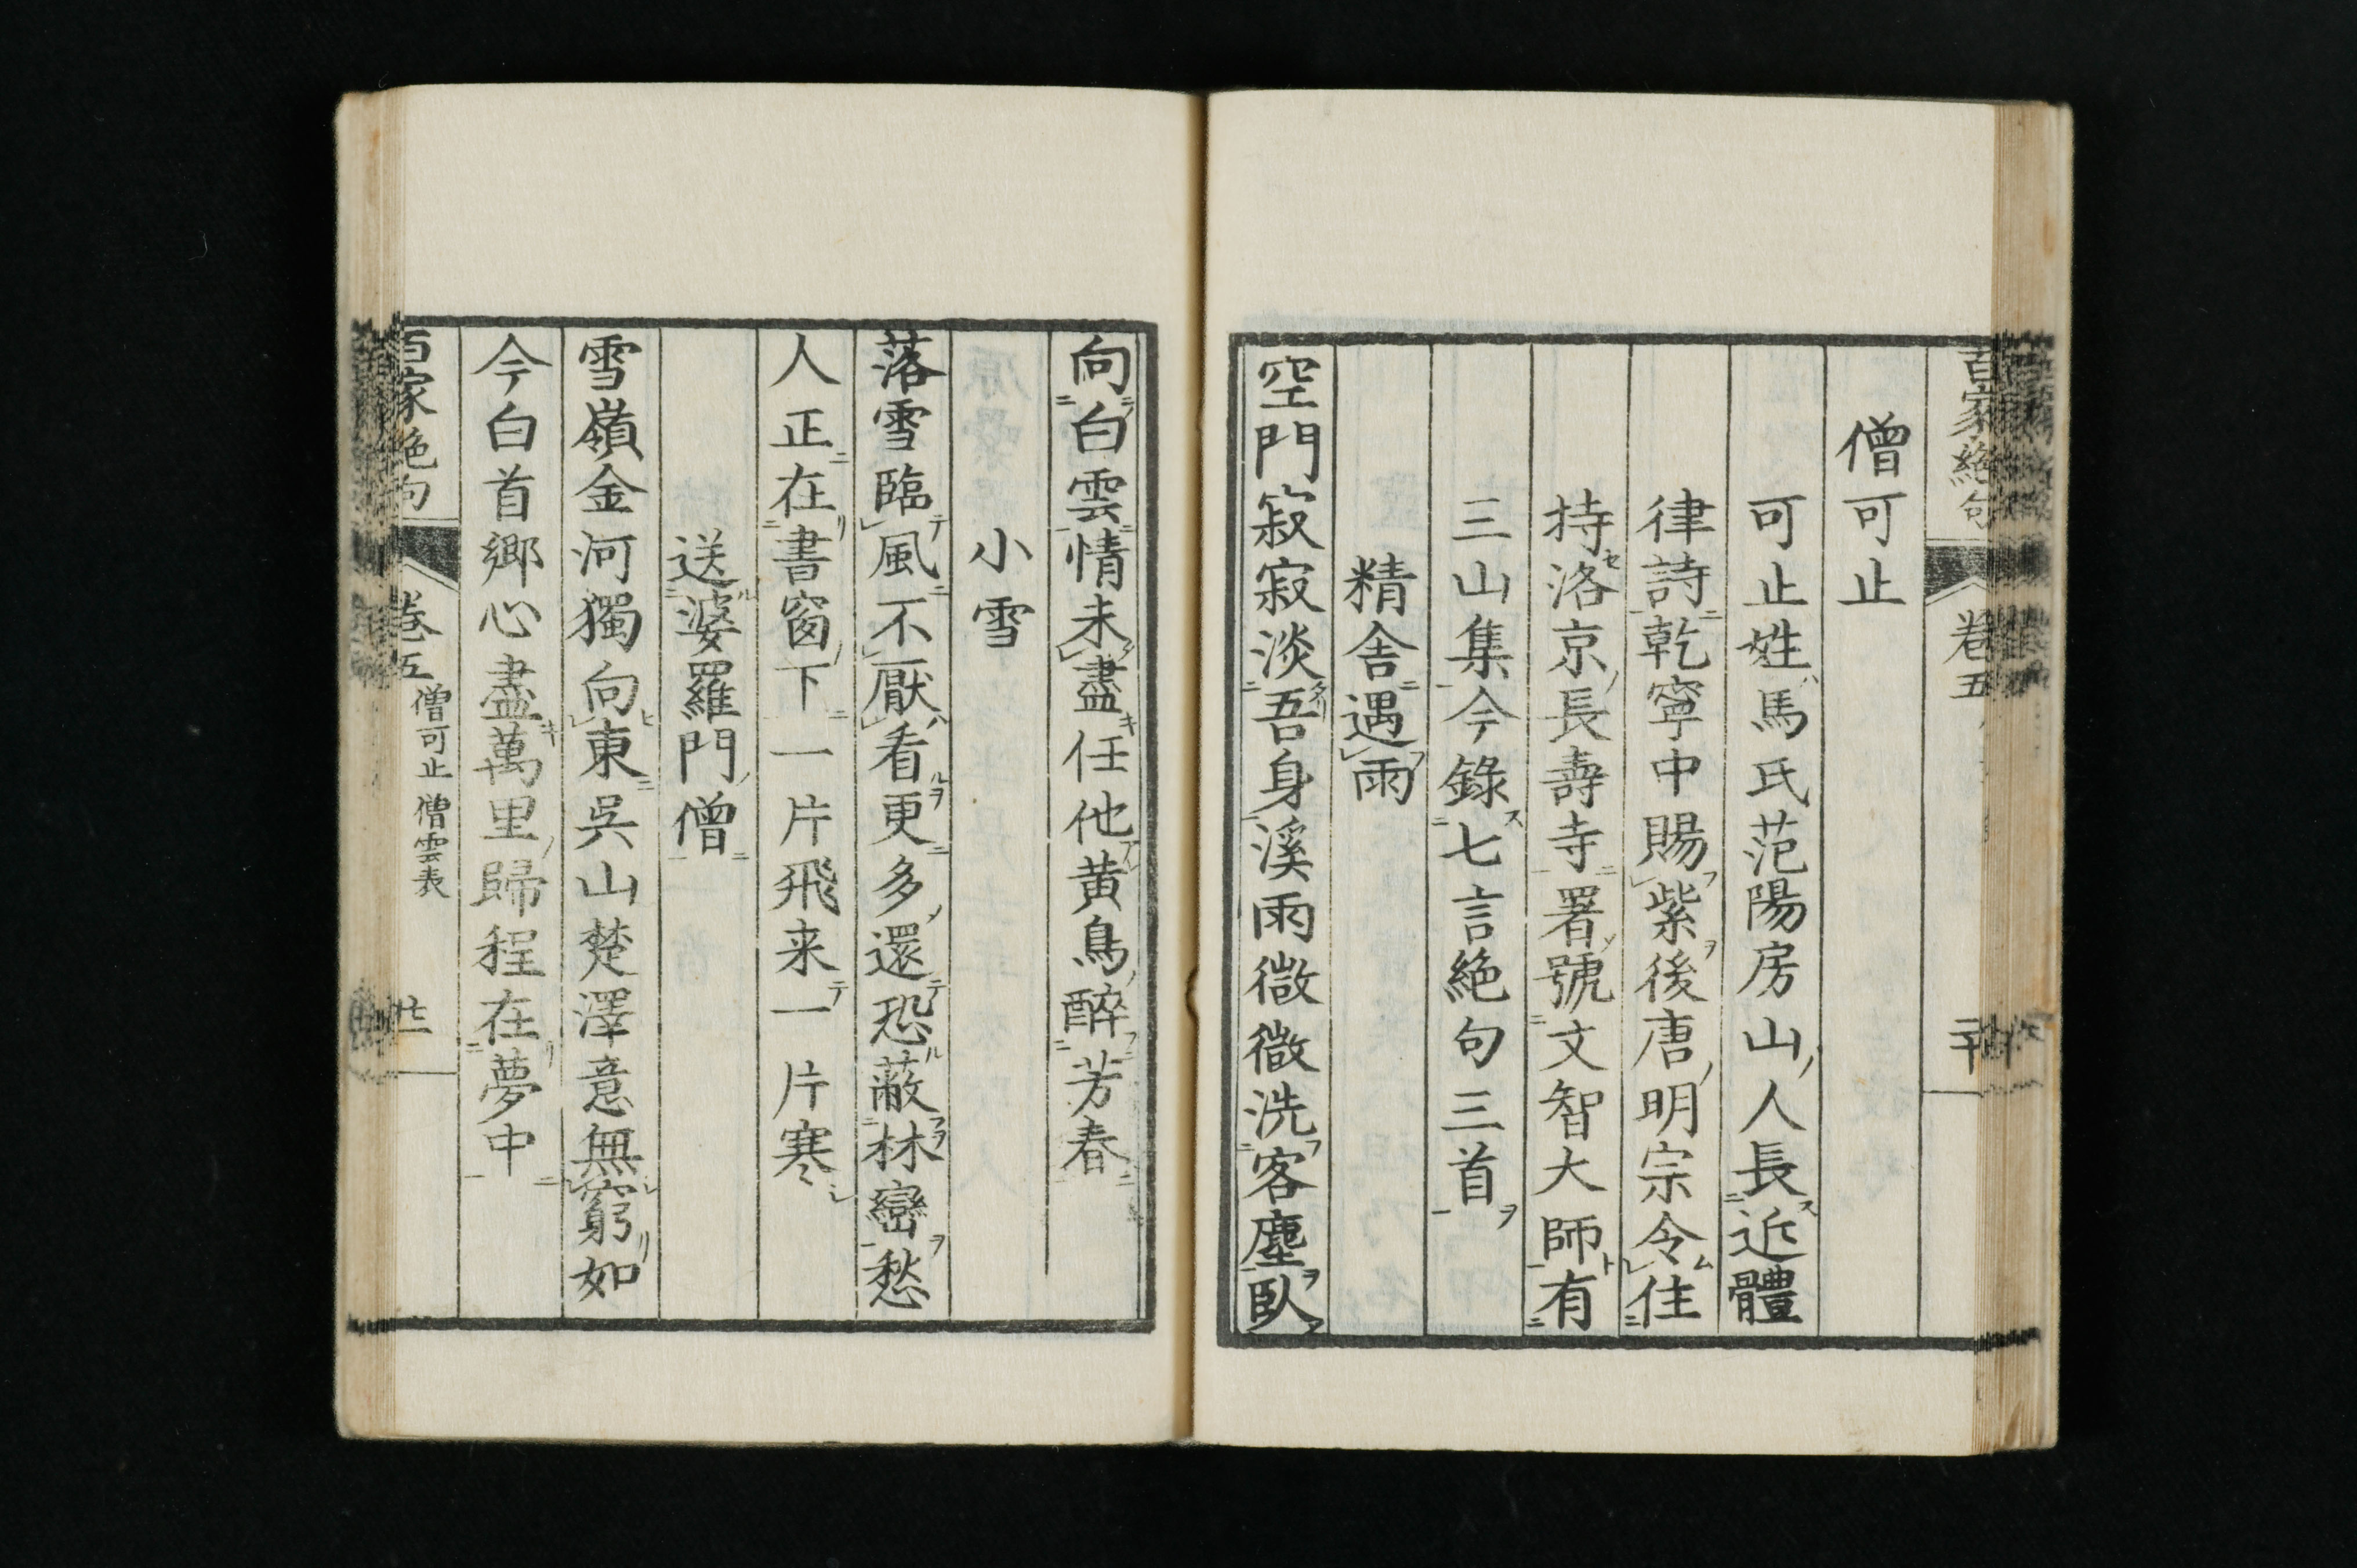 百家絶句 卷五 二十
僧可止
可止姓馬氏范陽房山人長近體
律詩乾寧中賜紫後唐明宗令住
持洛京長壽寺署號文智大師有
三山集今錄七言絶句三首
精舍遇雨
空門寂寂淡吾身溪雨微微洗客塵臥
向白雲情未盡任他黃鳥醉芳春
小雪
落雪臨風不厭看更多還恐蔽林巒愁
人正在書窗下一片飛来一片寒
送婆羅門僧
雪嶺金河獨向東吳山楚澤意無窮如
今白首鄉心盡萬里歸程在夢中
百家絶句 卷五 僧可止 僧雲表